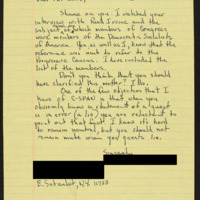 Shame on you. I watched your
interview with Reed Irvine and the
subject of which members of Congress
were members of the Democratic Socialists
of America. You as well as I know that the
reference was meant to refer to the
Progressive Caucus. I have included the
list of the members.
Don't you think that you should
have clarified this matter? I do.
One of the few objections that I
have of C-SPAN is that when you
obviously know a statement of a guest
is in error (a lie) you are reluctant to
point out that fact. I know it's hard
to remain neutral, but you should not
remain mute when your guests lie.
Sincerely
E. Setauket, N.Y. 11733